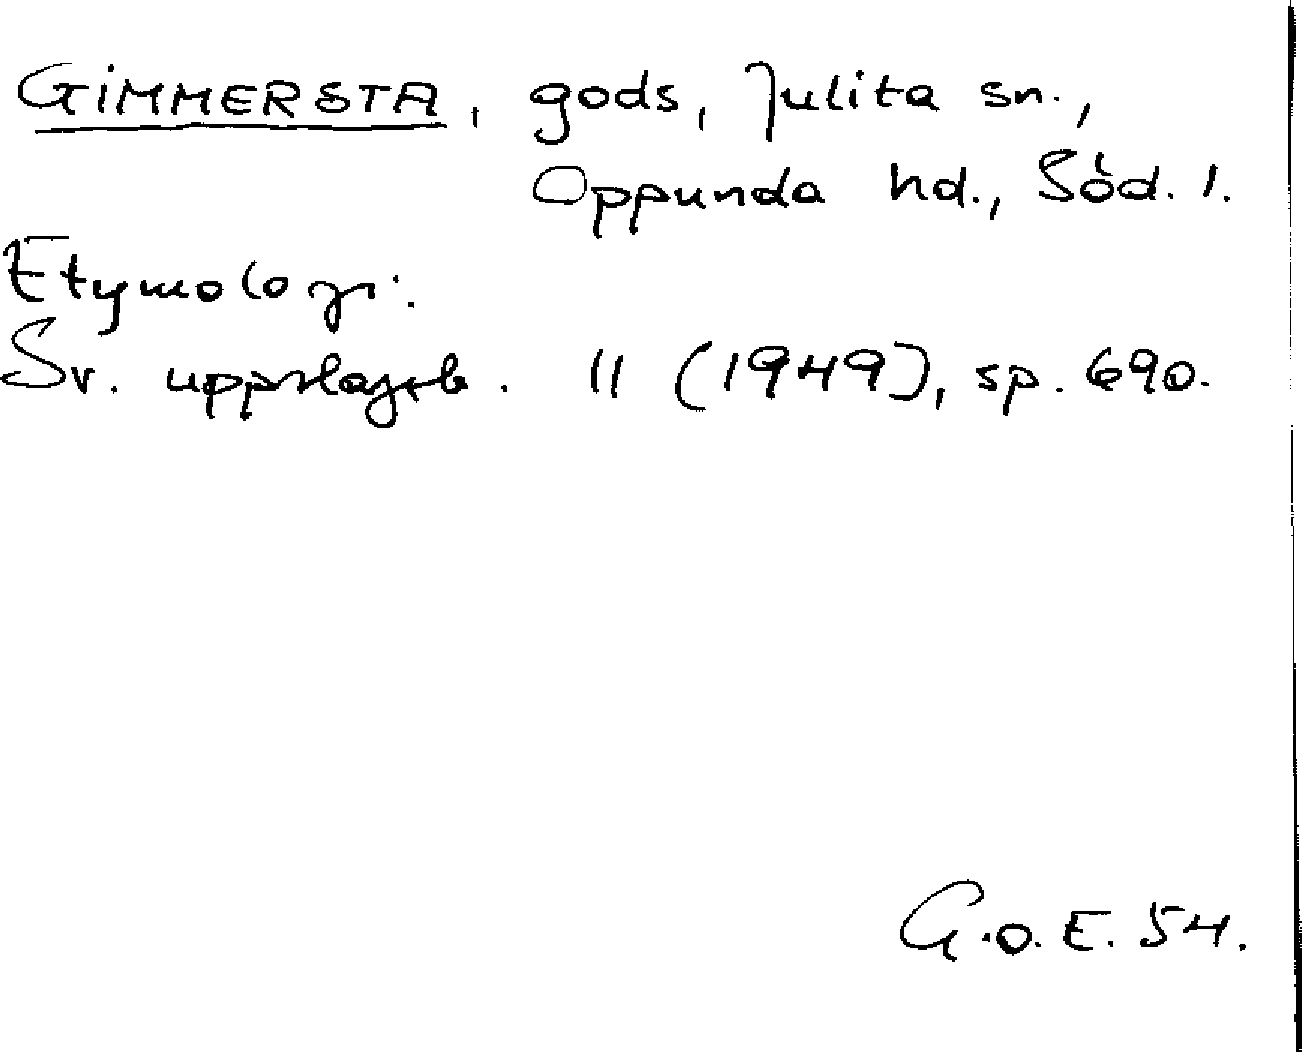 GIMMERSTA, gods, Julita sn.,
Oppunda hd., Söd. l.
Etymologi.
Sv. uppslagsb. 11 (1949), sp. 690.
G.O.E. 54.